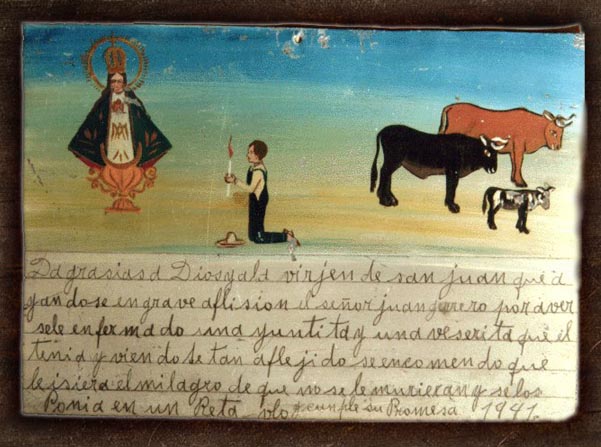 Da grasias a Dios y a la virjen de san juan que a
yandose en grave aflision el señor juan por aver
sele enfermado una yuntita y una veserita que el
tenia y viendose tan aflejido se encomendo que
le isiera el milagro de que no se le murieran y se los
Ponia en un Reta vlo y cunple su Promesa 1941.